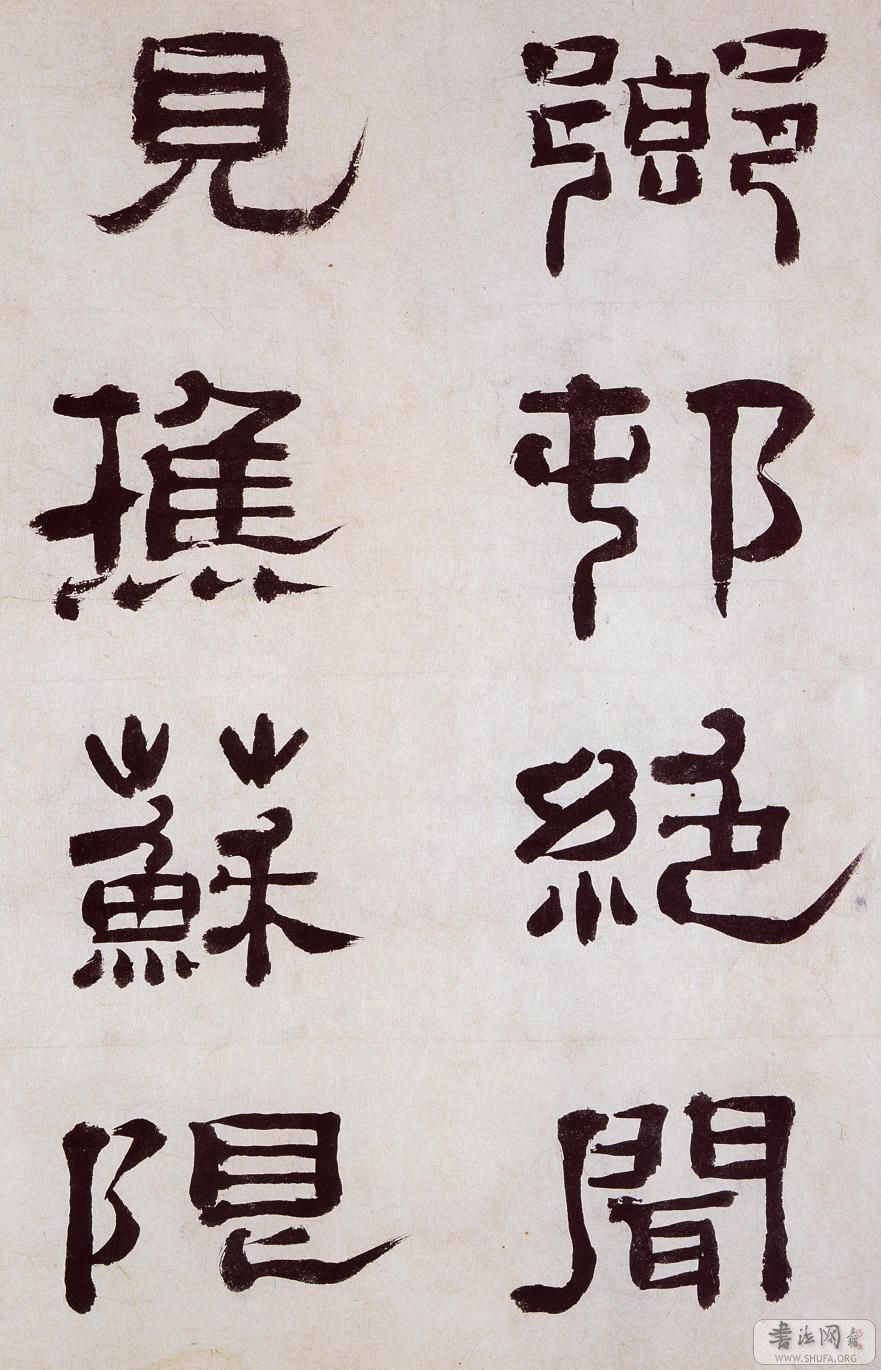 鄉邨絕聞
見樵蘇限
书法网
WWW.SHUFA.ORG